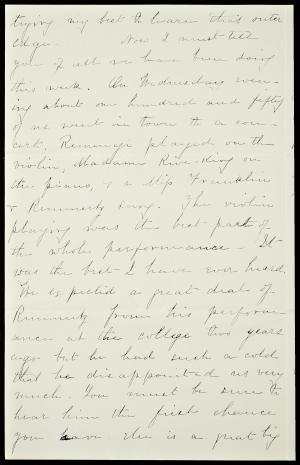 trying my best to learn that outer
edge. Now I must tell
you of all we have been doing
this week. On Wednesday even-
ing about one hundred and fifty
of us went in town to a con-
cert, Remenyi played on the
violin, Madame Rive-King on
the piano, & a Miss Franklin
& Remmertz sang. The violin
playing was the best part of
the whole performance - It
was the best I have ever heard.
We expected a great deal of
Remmertz from his perform-
ance at the college two years
ago but he had such a cold
that he disappointed us very
much. You must be sure to
hear him the first chance
you have. He is a great big